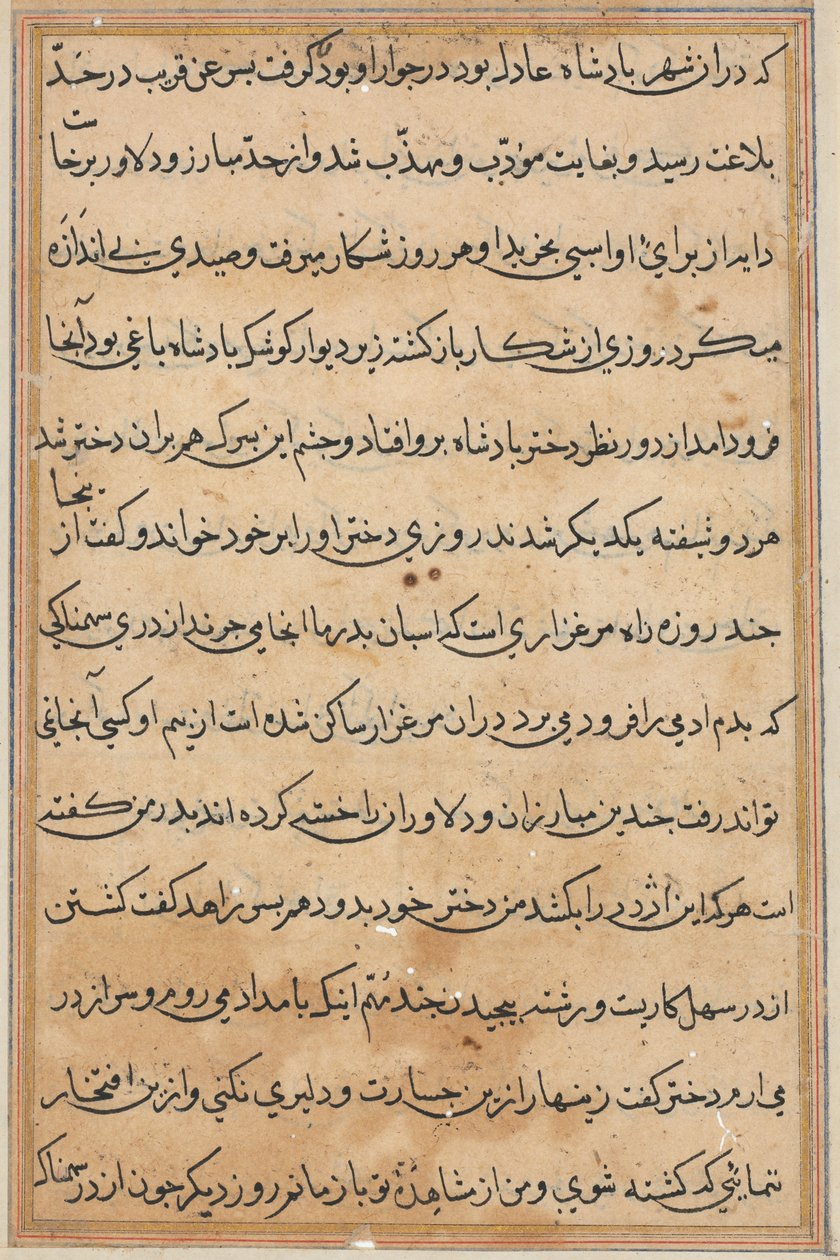 که دران شهر بادشاه عادل بود در جوار او بود کرفت بس عن قریب در حدّ
بلاغت رسید و بغایت مؤدّب و مهذّب شد و از حدّ مبارز و دلاور برخاست
دایه از برای او اسبی بخرید او هر روز شکار میرفت و صیدی بی اندازه
میکرد روزی از شکار باز کشته زیر دیوار کوشک بادشاه باغی بود آنجا
فرود امد از دور نظر دختر بادشاه برو افتاد و جشم این بسرک هم بران دختر شد
هر دو شیفته یکدیکر شدند روزی دختر او را بر خود خواند و کفت از ینجا
جند روزه راه مرغزاری است که اسبان بدر ما انجا می جرند ازدری سهمناکی
که بدم ادمی را فرود می برد دران مرغزار ساکن شده است از بیم او کسی آنجا نمی
تواند رفت جندین مبارزان و دلاوران را خسته کرده اند بدر من کفته
است هر که این اژدر را بکشد من دختر خود بدو دهم بسر زاهد کفت کشتن
ازدر سهل کاریست و رشته بیجیدن جند مُهّم اینک بامداد می روم و سر ازدر
می ارم دختر کفت زینهار ازین جسارت و دلیری نکنی و ازین افتخار
ننمائی که کشته شوی و من از مشاهدۀ تو باز مانم روز دیکر جون ازدر سهمناک